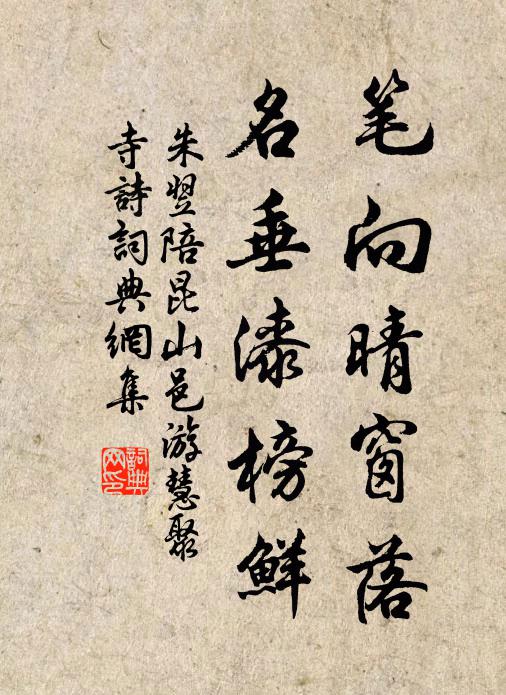 笔向晴窗落
名垂漆榜鲜
朱翌陪昆山邑游慧聚
寺詩詞典網集
詞典網印